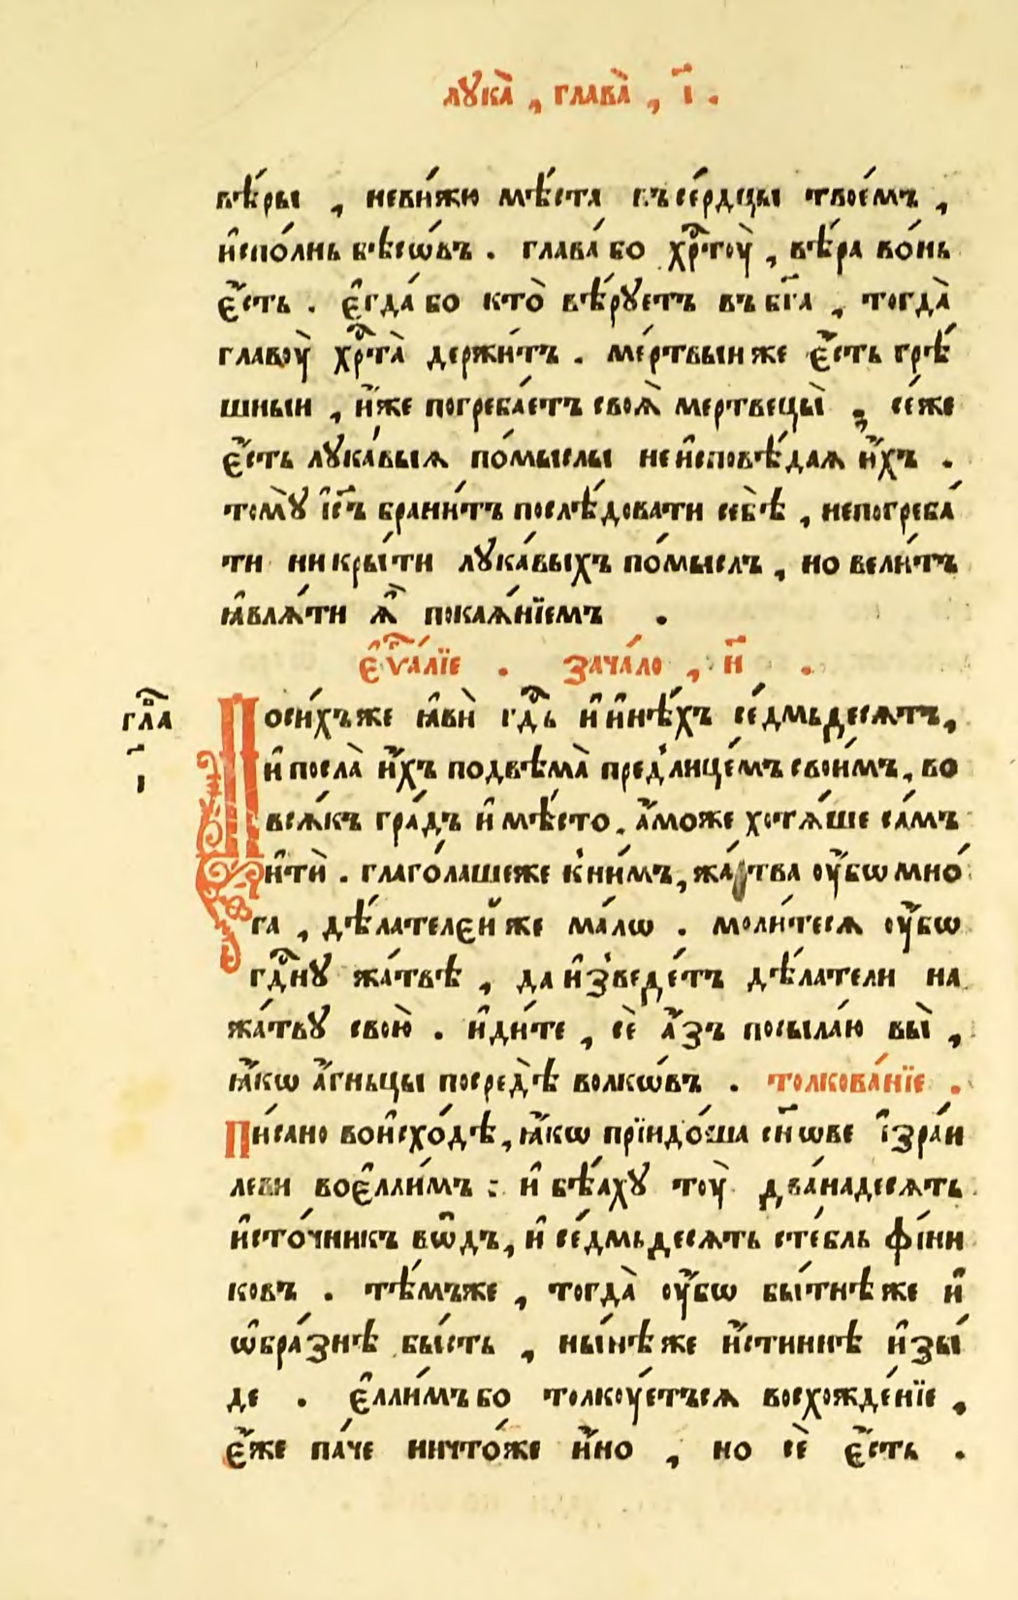 лꙋка̀ , глава̀ , і҃ .
вѣ́ры , невѝжю мѣ́ста въсе́рдцы твое́мъ ,
и҆спо́лнь бѣсѡ́въ . глава́ бо хрⷭ҇тоу̀ , вѣ́ра во́нь
є҆́сть . є҆гда́ бо кто̀ вѣ́рꙋетъ въ бг҃а , тогда̀
главоу̀ хрⷭ҇та̀ держи́тъ . ме́ртвыи же є҆́сть грѣ́
шныи , и҆́же погреба́етъ своѧ̀ мертвецы̀ , се́же
є҆́сть лꙋка́выѧ по́мыслы не и҆сповѣ́даѧ и҆́хъ .
томꙋ̀ і҆с҃ъ брани́тъ послѣ́довати себѣ̀ , непогреба́
ти ни кры́ти лꙋка́выхъ по́мыслъ , но вели́тъ
ꙗ҆влѧ́ти ѧ҆̀ покаѧ́нїемъ .
є҆ѵⷢ҇а́лїе . зача́ло , н҃ .
глⷡ҇а
і҃
Посѝхъже ꙗ҆вѝ гдⷭ҇ь и҆ и҆нѣ́хъ се́дмьдесѧтъ,
и҆ посла̀ и҆́хъ подвѣма̀ пред̾лице́мъ свои́мъ, во
всѧ́къ гра́дъ и҆ мѣ́сто . а҆́може хотѧ́ше са́мъ
и҆тѝ . глаго́лашеже к̾ни́мъ, жа́тва оу҆́бѡ мно́
га , дѣ́лателєй же ма́лѡ . моли́тесѧ оу҆́бѡ
гдⷭ҇нꙋ жа́твѣ , да и҆зведе́тъ дѣ́латели на
жа́твꙋ свою̀ . и҆ди́те , сѐ а҆́зъ посыла́ю вы̀ ,
ꙗ҆́кѡ а҆́гньцы посредѣ̀ волкѡ́въ . толкова́нїе .
Пи́сано во и҆схо́дѣ, ꙗ҆́кѡ прїидо́ша сн҃ове і҆зра́и
леви воє҆лли́мъ : и҆ бѣ́ахꙋ тоу̀ двана́десѧть
и҆сто́чникъ во҆́дъ, и҆ се́дмьдесѧть сте́бль фі́ни
ковъ . тѣ́мъже , тогда̀ оу҆́бѡ бы́тнѣ же и҆
ѡ҆бра́знѣ бы́сть , ны́нѣ же и҆́стиннѣ и҆зы́
де . є҆лли́мъ бо толкоу́етъсѧ восхожде́нїе ,
є҆́же па́че ничто́же и҆́но , но сѐ є҆́сть .